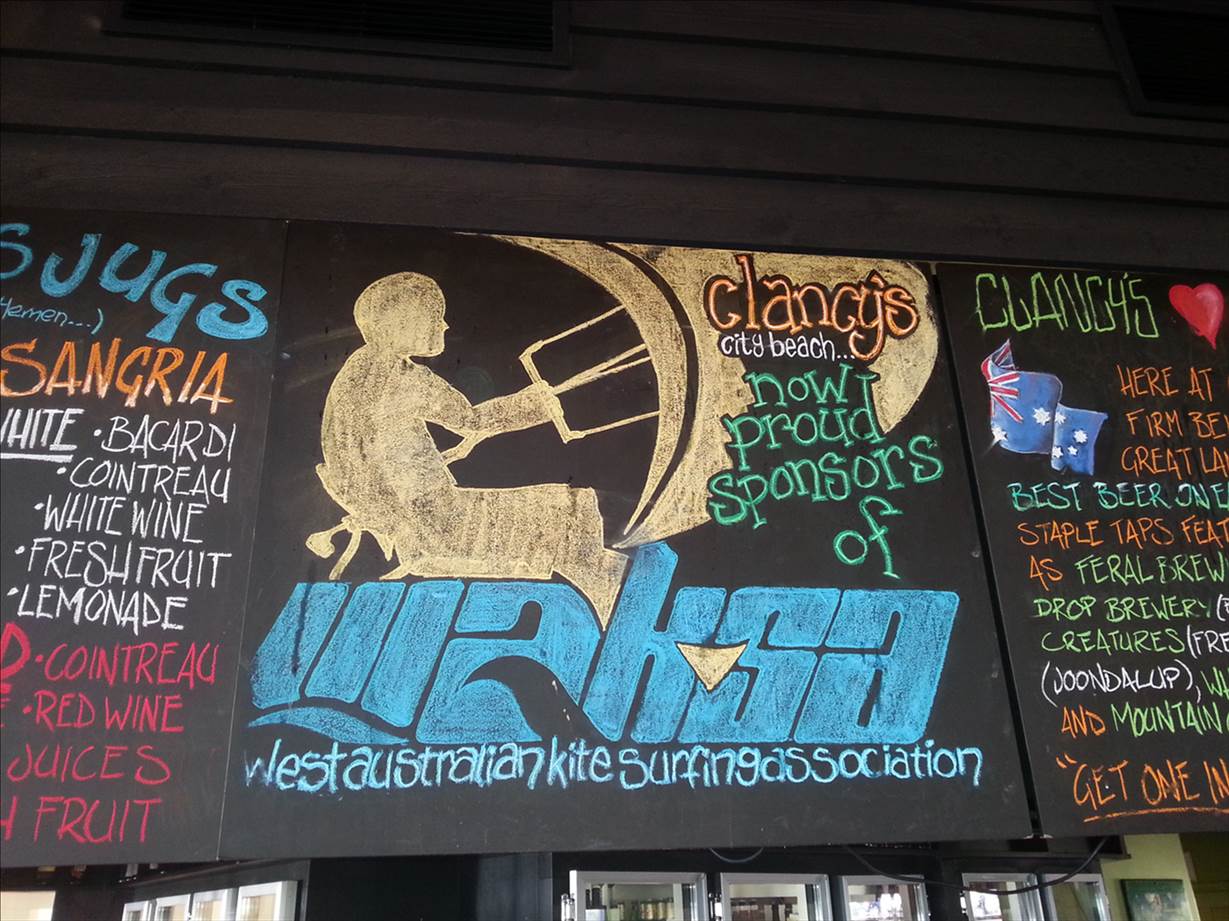 JUGS
SANGRIA
WHITE • BACARDI
• COINTREAU
• WHITE WINE
• FRESH FRUIT
• LEMONADE
• COINTREAU
• RED WINE
JUICES
FRUIT
clancy's
city beach...
now
proud
sponsors
of
waksa
west australian kite surfing association
CLANCY'S
HERE AT
FIRM
GREAT
BEST BEER ON
STAPLE TAPS
AS FERAL
DROP BREWERY
CREATURES
(JOONDALUP),
AND MOUNTAIN
"GET ONE